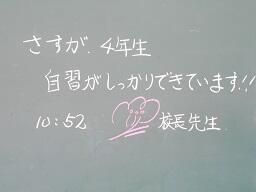 さすが、4年生
自習がしっかりできています!!
10:52 校長先生